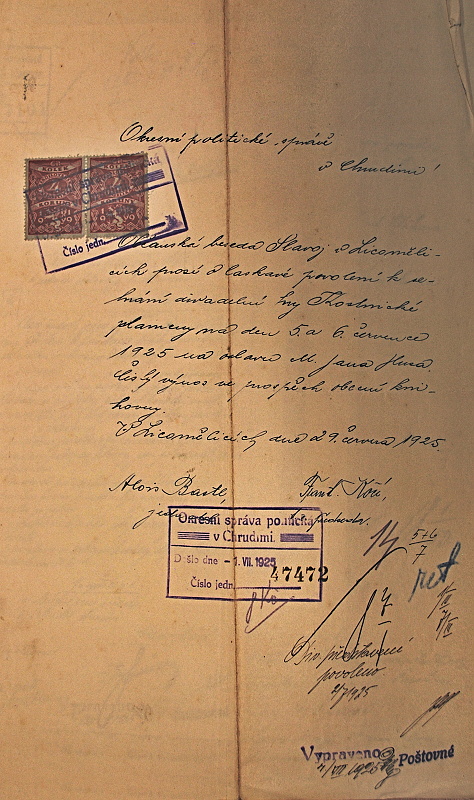 Okresní politické správě
v Chrudimi!
KOLEK KOLEK
Číslo jedn.
Občanská beseda Slavoj v Licoměli-
cích prosí o laskavé povolení k se-
hrání divadelní hry Kostnické
plameny na den 5. a 6. července
1925 na oslavu M. Jana Husa.
Čistý výnos ve prospěch obecní kni-
hovny.
V Licomělicích, dne 29. června 1925.
Alois Bartl, Frant. Kočí,
Okresní správa politická
v Chrudimi.
Došlo dne - 1. VII. 1925
Číslo jedn. 47472
5+6
7
ret
Div. představení
povoleno
2/7 1925
Vypraveno Poštovné
4/VII 1925